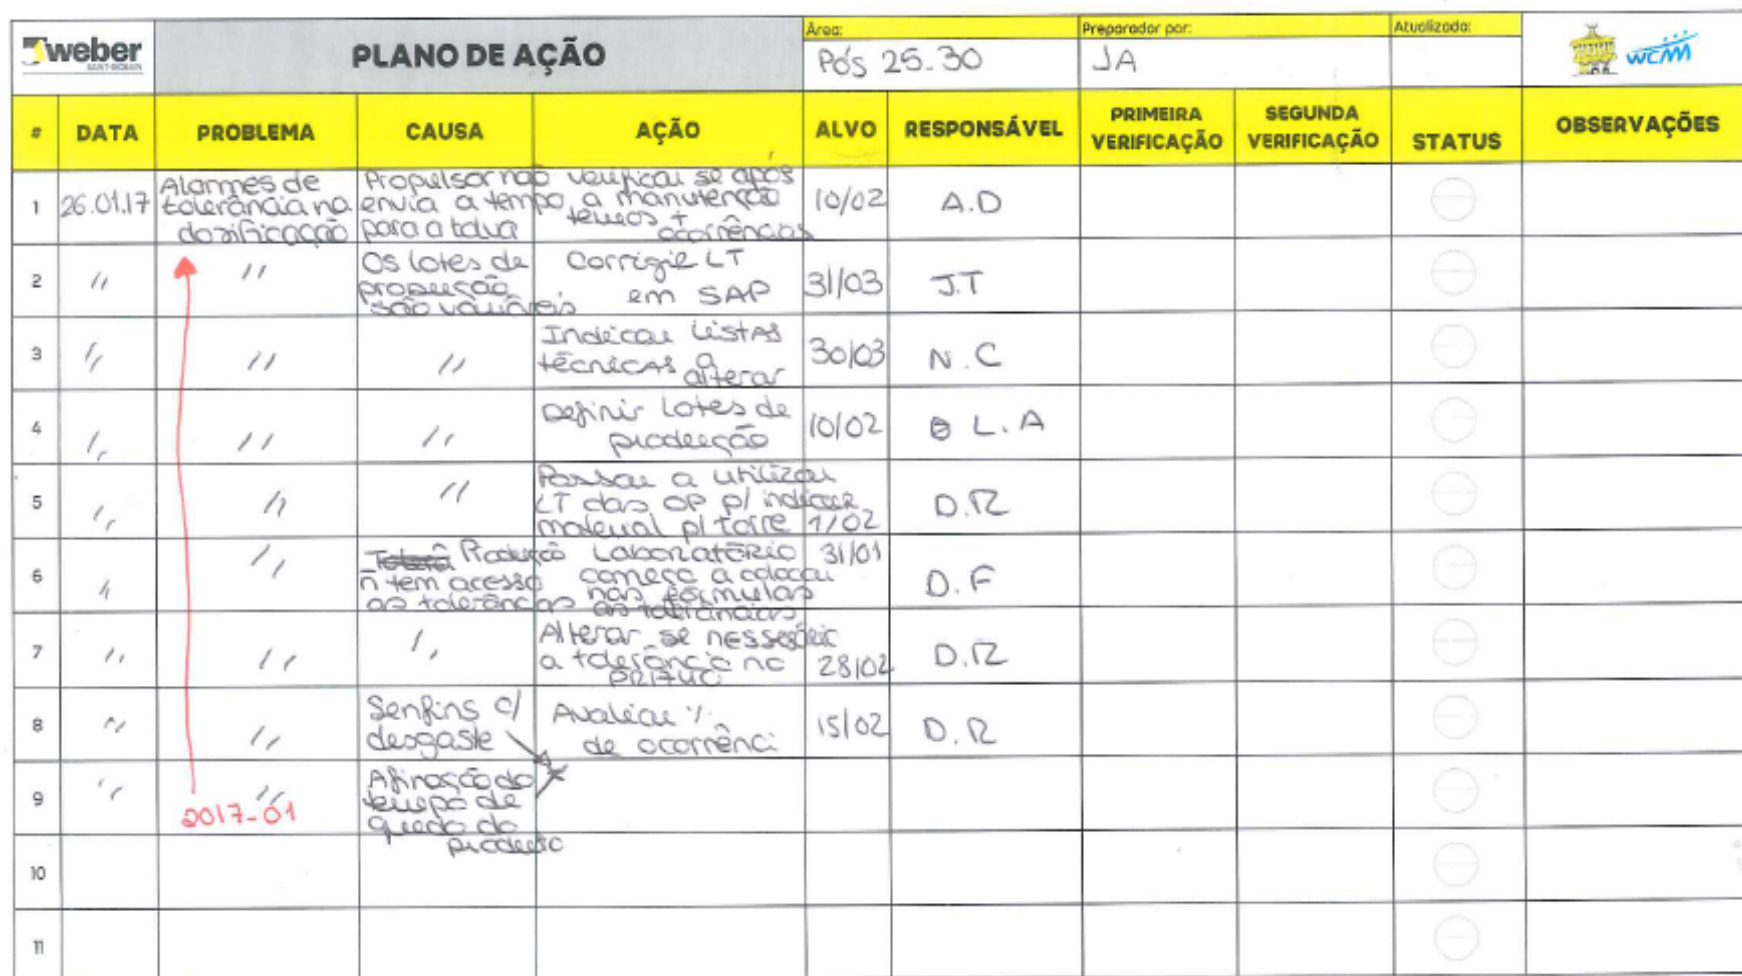 weber
SAINT-GOBAIN
PLANO DE AÇÃO
Área:
Pós 25.30
Preparador por:
JA
Atualizado:
WCM
# DATA PROBLEMA CAUSA AÇÃO ALVO RESPONSÁVEL PRIMEIRA VERIFICAÇÃO SEGUNDA VERIFICAÇÃO STATUS OBSERVAÇÕES
1 26.01.17
Alarmes de
tolerância na
dosificação
Propulsor não
envia a tempo
para a tolva
Verificar se após
a manutenção
temos +
ocorrências
10/02
A.D
2 " "
Os lotes de
produção
são variáveis
Corrigir LT
em SAP
31/03
J.T
3 " " "
Indicar Listas
técnicas a
alterar
30/03
N.C
4 " " "
Definir Lotes de
producção
10/02
L.A
5 " " "
Passar a utilizar
LT das OP p/ indicar
material p/ torre
1/02
D.R
6 " "
Produção
ñ tem acesso
as tolerâncias
Laboratório
começa a colocar
nas formulas
as tolerâncias
31/01
D.F
7 " " "
Alterar se nessesário
a tolerância no
28/02
D.R
8 " "
Senfins c/
desgaste
Avaliar %
de ocorrênci
15/02
D.R
9 " "
Afinação do
tempo de
queda do
producto
2017-01
10
11